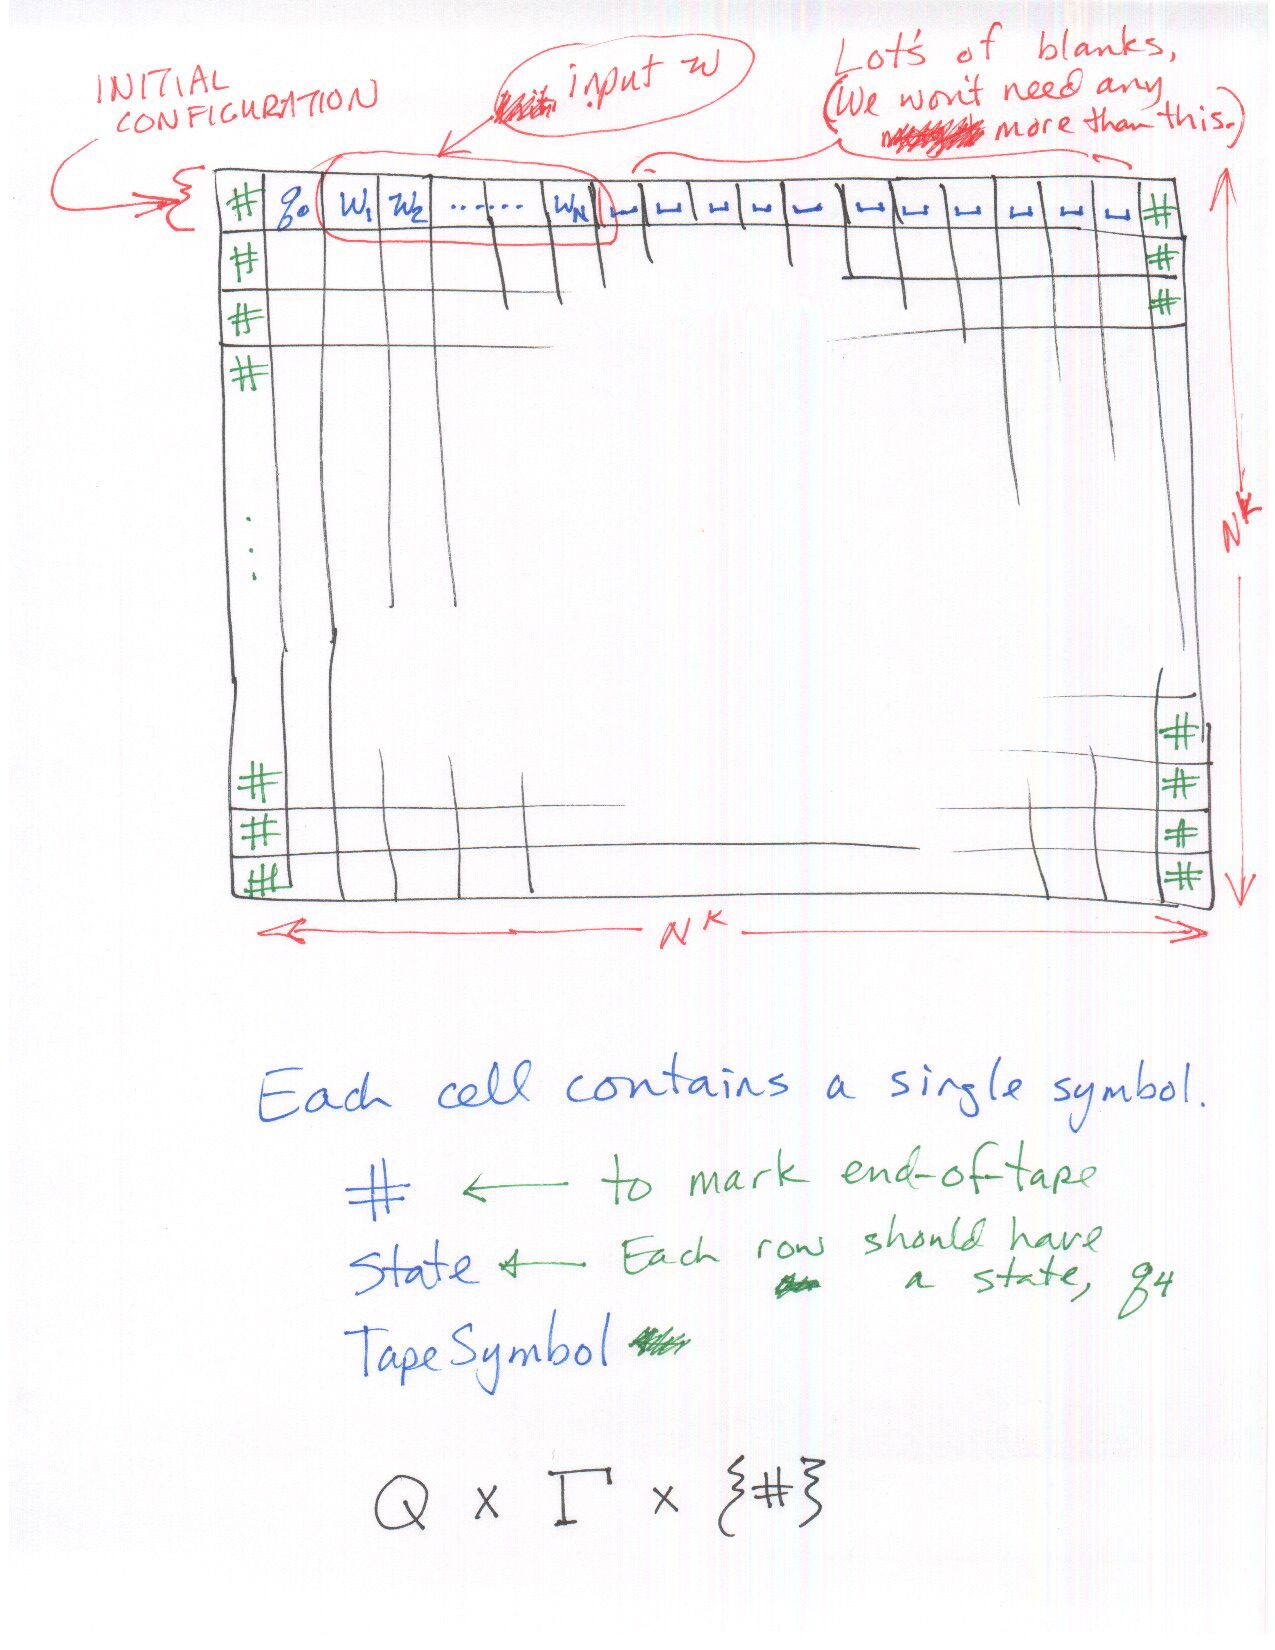 INITIAL
CONFIGURATION
input w
Lot's of blanks,
(We won't need any
more than this.)
# q₀ w₁ w₂ ...... w_N ⎵ ⎵ ⎵ ⎵ ⎵ ⎵ ⎵ ⎵ ⎵ ⎵ ⎵ #
# #
# #
#
⋮
N^K
#
# #
# #
# #
N^K
Each cell contains a single symbol.
# ← to mark end-of-tape
State ← Each row should have
a state, q₄
Tape Symbol
Q x Γ x {#}